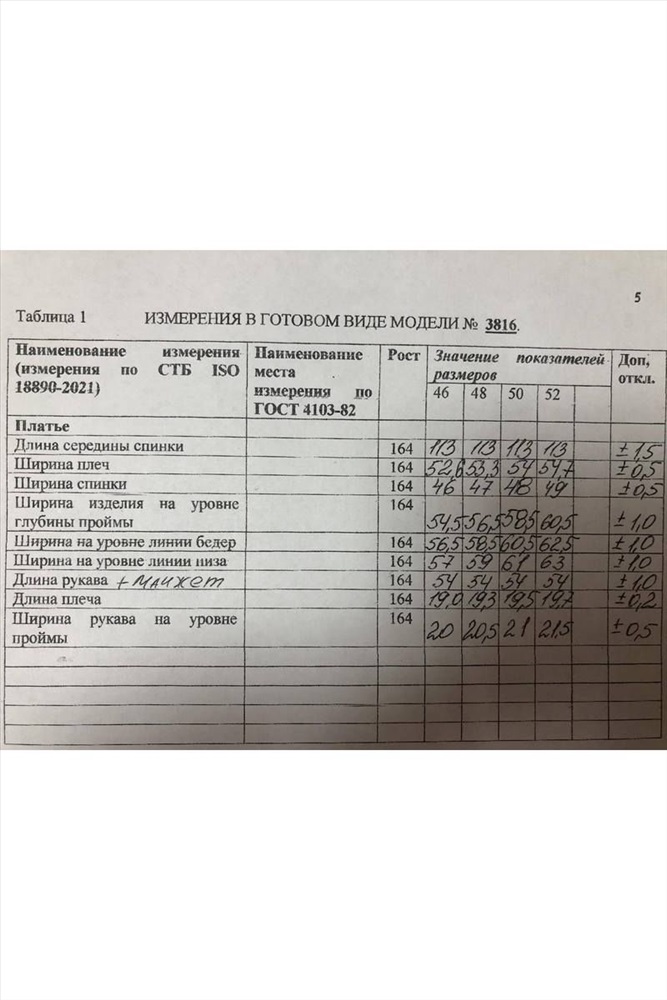 5
Таблица 1 ИЗМЕРЕНИЯ В ГОТОВОМ ВИДЕ МОДЕЛИ № 3816.
Наименование измерения (измерения по СТБ ISO 18890-2021) Наименование места измерения по ГОСТ 4103-82 Рост Значение показателей размеров Доп, откл.
46 48 50 52
Платье
Длина середины спинки 164 113 113 113 113 ±1,5
Ширина плеч 164 52,6 53,3 54 54,7 ±0,5
Ширина спинки 164 46 47 48 49 ±0,5
Ширина изделия на уровне
глубины проймы 164 54,5 56,5 58,5 60,5 ±1,0
Ширина на уровне линии бедер 164 56,5 58,5 60,5 62,5 ±1,0
Ширина на уровне линии низа 164 57 59 61 63 ±1,0
Длина рукава + манжет 164 54 54 54 54 ±1,0
Длина плеча 164 19,0 19,3 19,5 19,7 ±0,2
Ширина рукава на уровне
проймы 164 20 20,5 21 21,5 ±0,5